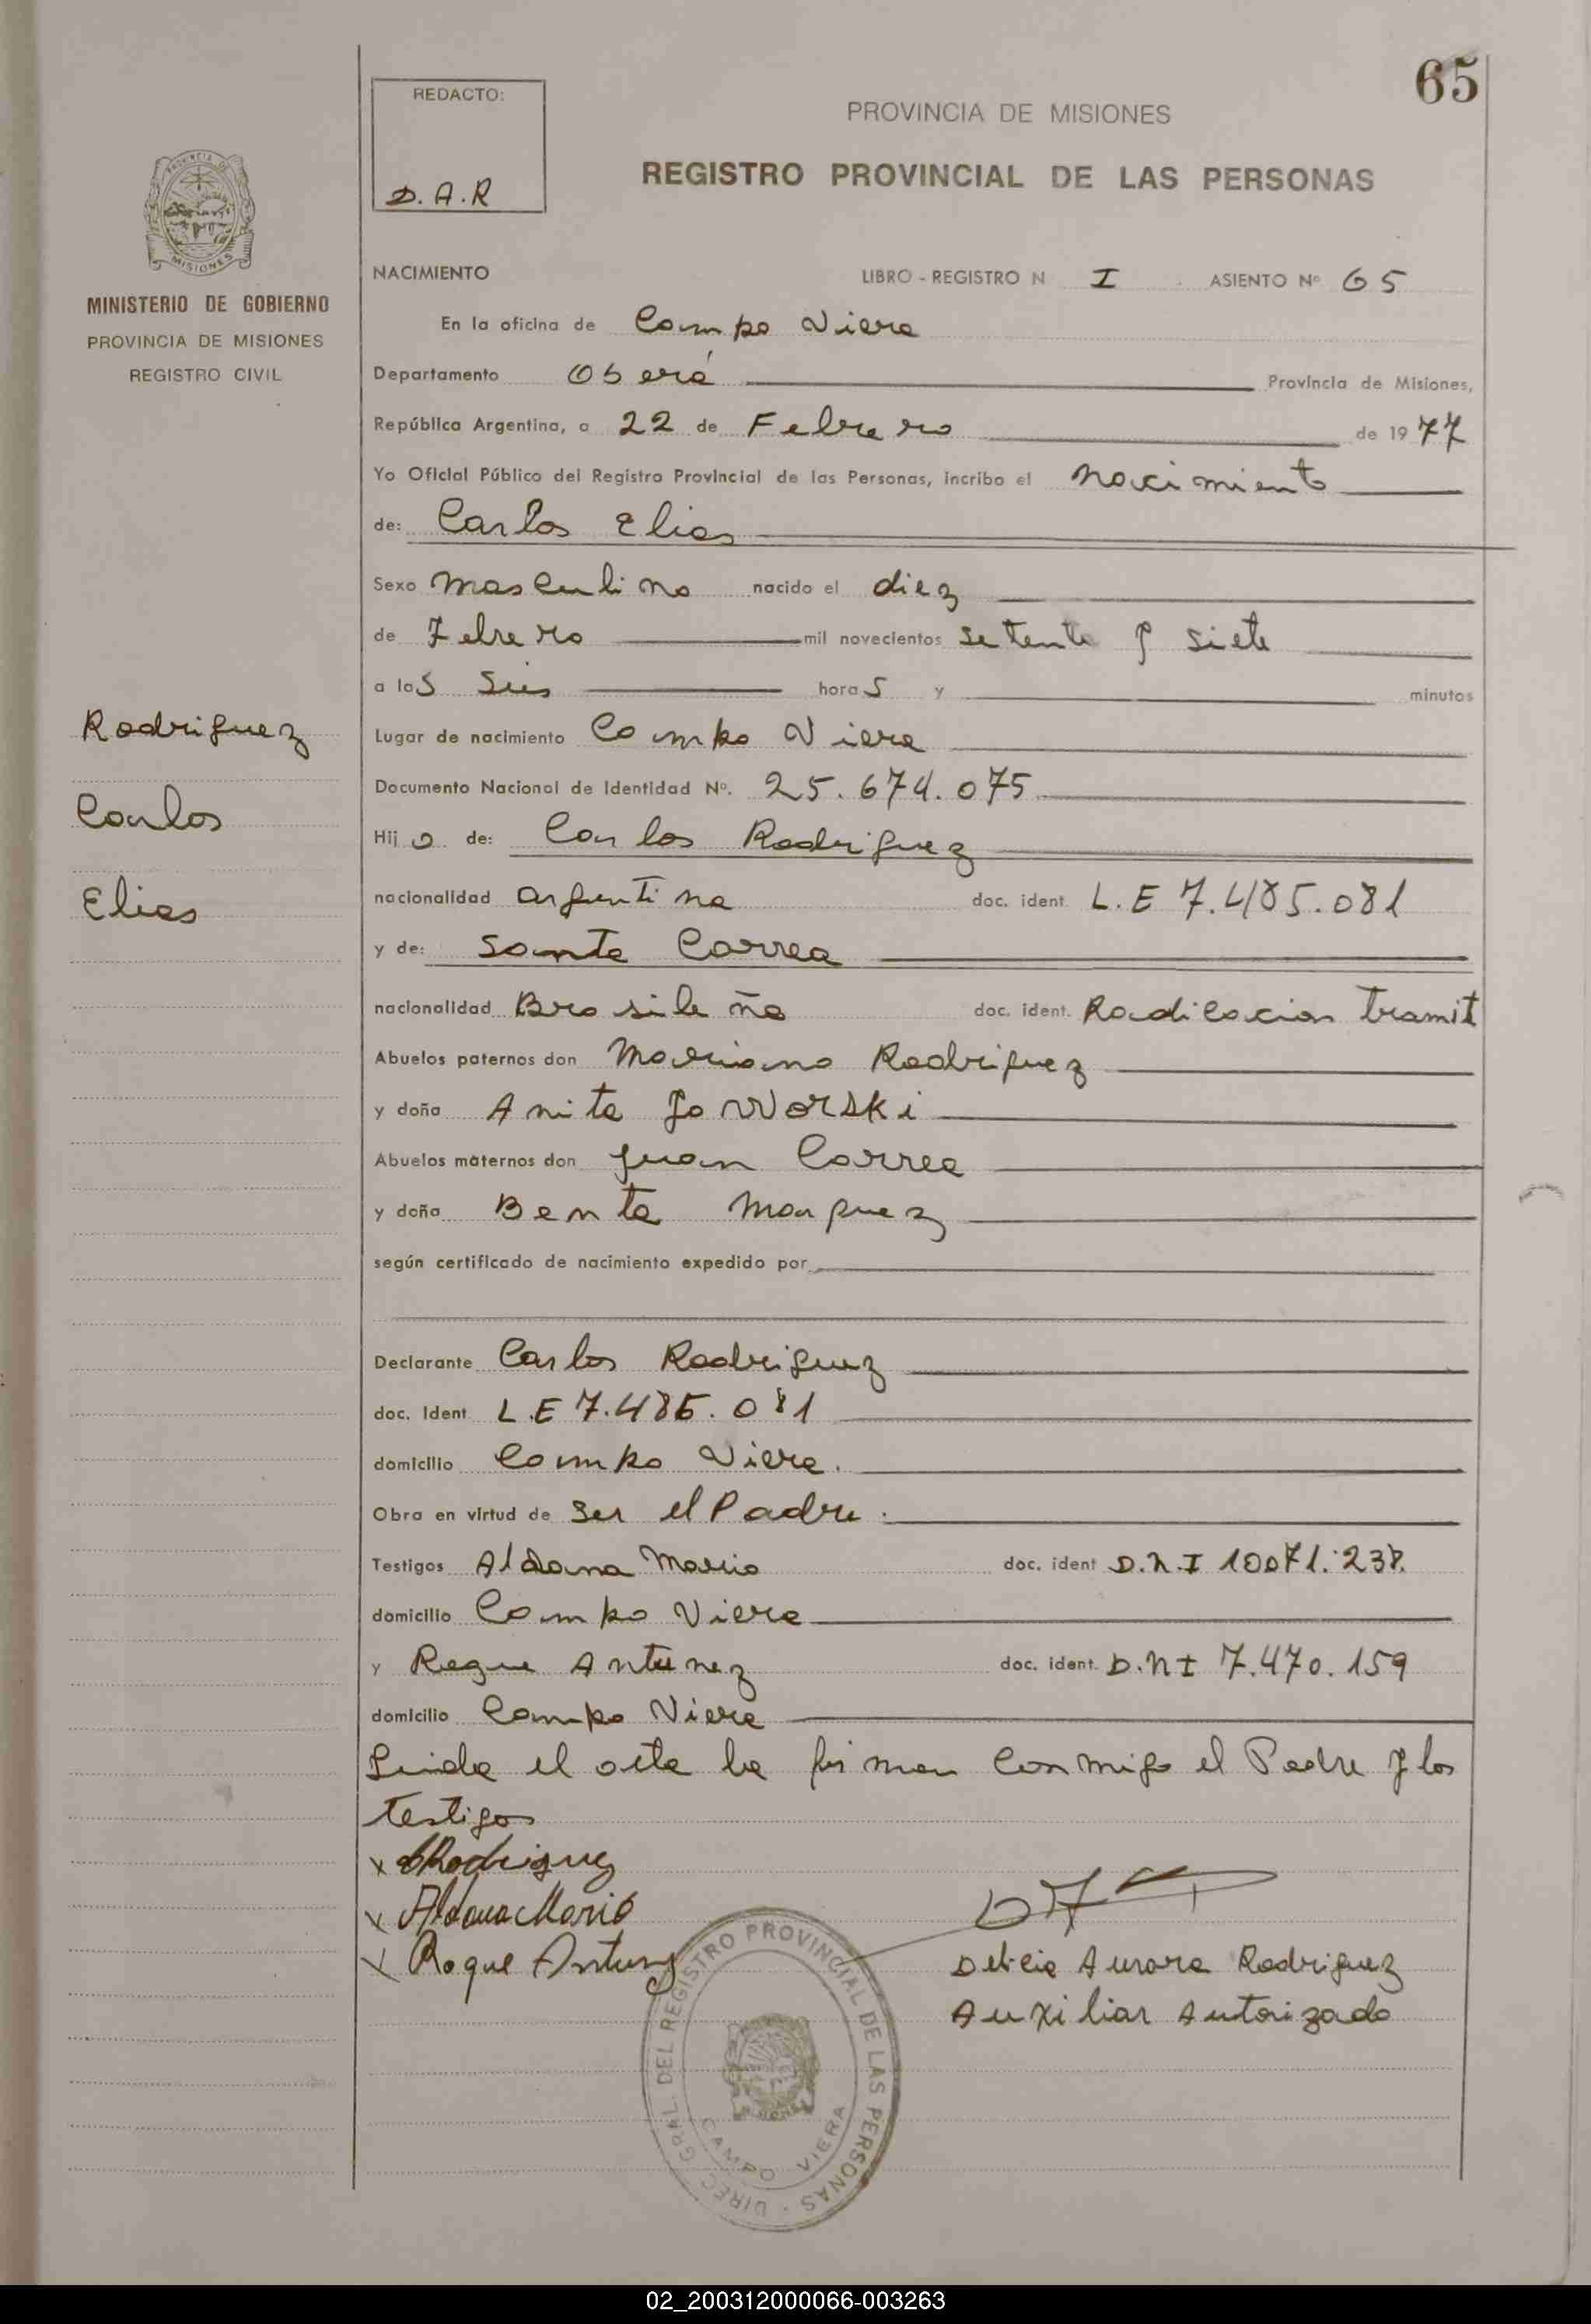 65
REDACTO:
D.A.R
PROVINCIA DE MISIONES
REGISTRO PROVINCIAL DE LAS PERSONAS
PROVINCIA DE
MISIONES
MINISTERIO DE GOBIERNO
PROVINCIA DE MISIONES
REGISTRO CIVIL
NACIMIENTO LIBRO - REGISTRO N I ASIENTO Nº 65
En la oficina de Campo Viera
Departamento Oberá Provincia de Misiones,
República Argentina, a 22 de Febrero de 1977
Yo Oficial Público del Registro Provincial de las Personas, incribo el nacimiento
de: Carlos Elias
Sexo masculino nacido el diez
de Febrero mil novecientos setenta y siete
a las seis horas y minutos
Rodriguez
Carlos
Elias
Lugar de nacimiento Campo Viera
Documento Nacional de Identidad Nº. 25.674.075
Hijo de: Carlos Rodriguez
nacionalidad argentina doc. ident. L.E 7.485.081
y de: Santa Correa
nacionalidad Brasileña doc. ident. Radicacion tramit
Abuelos paternos don Mariano Rodriguez
y doña Anita JoWorski
Abuelos maternos don Juan Correa
y doña Benta Marquez
según certificado de nacimiento expedido por
Declarante Carlos Rodriguez
doc. Ident L.E 7.485.081
domicilio Campo Viera.
Obra en virtud de ser el Padre.
Testigos Aldana Mario doc. ident D.N.I 10071.238.
domicilio Campo Viera
y Roque Antunez doc. ident. D.N I 7.470.159
domicilio Campo Viera
Leida el acta la firman conmigo el Padre y los
testigos
x CRodriguez
x Aldana Mario
x Roque Antunez
Delicia Aurora Rodriguez
Auxiliar Autorizado
DIREC. GRAL. DEL REGISTRO PROVINCIAL DE LAS PERSONAS
CAMPO VIERA
02_200312000066-003263